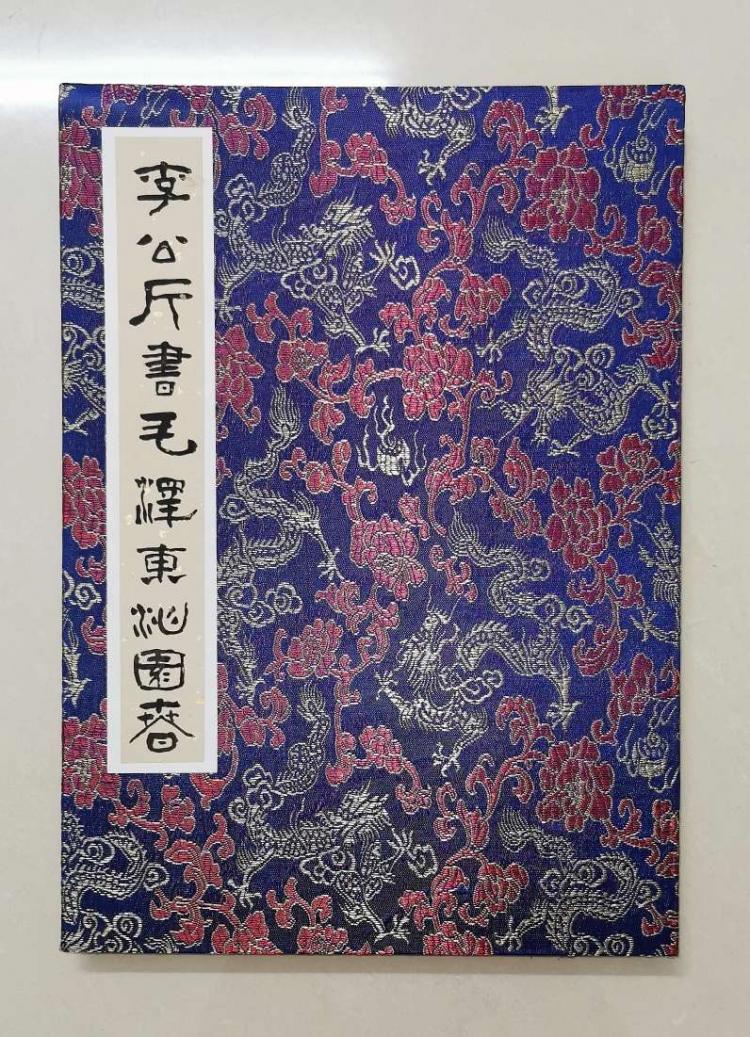 李公斤書毛澤東沁園春